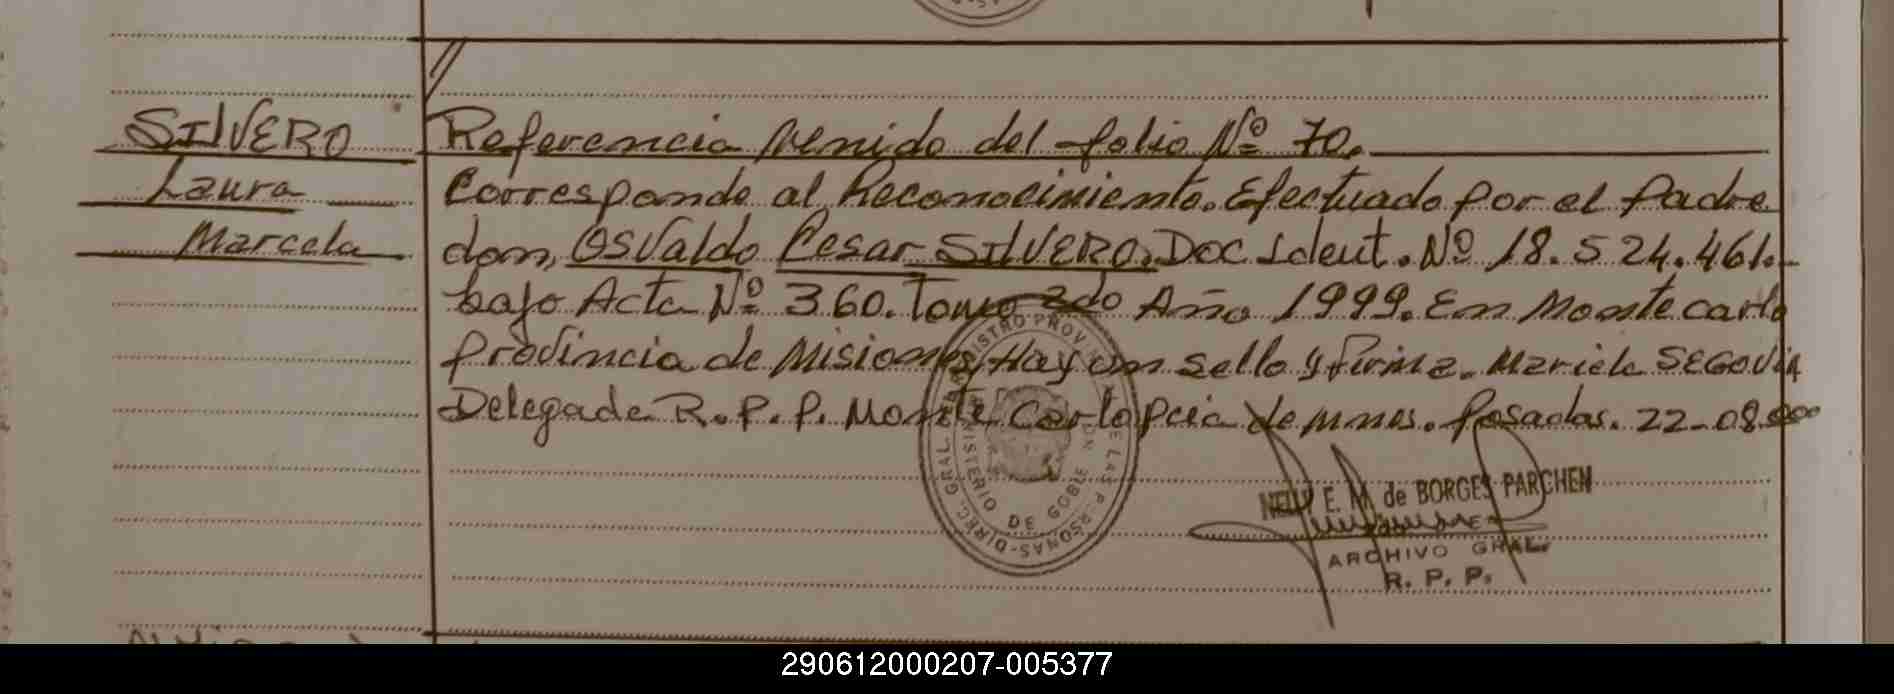 SILVERO
Laura
Marcela
//
Referencia Venida del folio Nº 70.
Corresponde al Reconocimiento. Efectuado por el Padre
don, OSValdo Cesar SILVERO. Doc Ident. Nº 18.524.461.-
bajo Acta Nº 360. Tomo 2do Año 1999. En Monte carlo
provincia de Misiones, Hay un sello y firma. Mariela SEGOVIA
Delegada R.P.P. Monte Carlo Pcia de Mnes. Posadas. 22-08-000
NELLY E. M. de BORGES PARCHEM
ARCHIVO GRAL.
R. P. P.
290612000207-005377